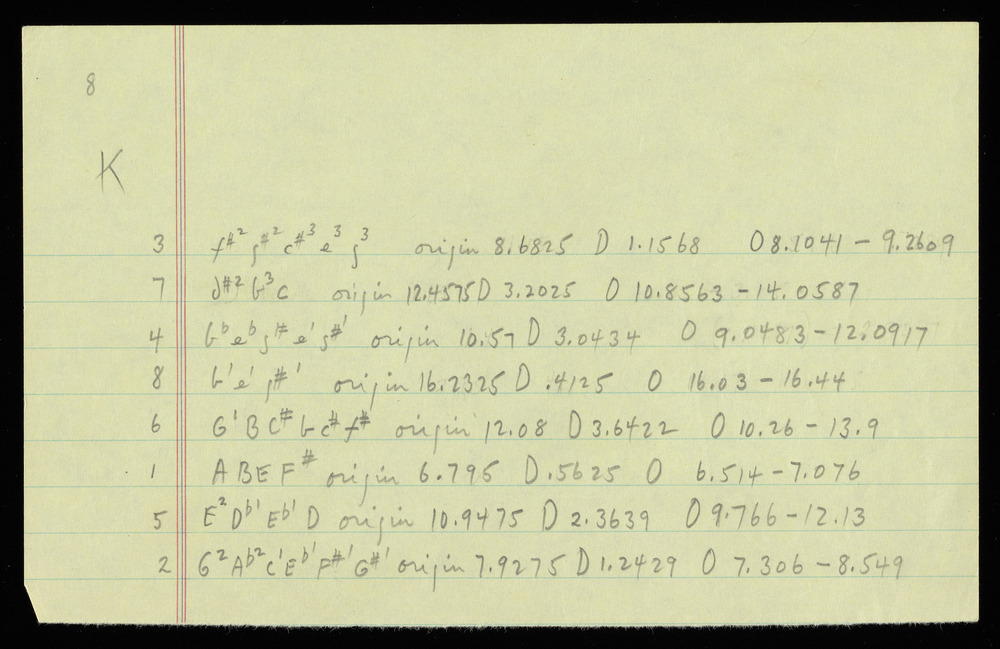 8
K
3 f#² g#² c#³ e³ g³ origin 8.6825 D 1.1568 O 8.1041 – 9.2609
7 d#² b³ c origin 12.4575 D 3.2025 O 10.8563 – 14.0587
4 b♭ e♭ g# e' g#' origin 10.57 D 3.0434 O 9.0483 – 12.0917
8 b' e' g#' origin 16.2325 D .4125 O 16.03 – 16.44
6 G' B C# b c# f# origin 12.08 D 3.6422 O 10.26 – 13.9
1 A B E F# origin 6.795 D .5625 O 6.514 – 7.076
5 E² D♭' E♭' D origin 10.9475 D 2.3639 O 9.766 – 12.13
2 G² A♭² C' E♭' F#' G#' origin 7.9275 D 1.2429 O 7.306 – 8.549